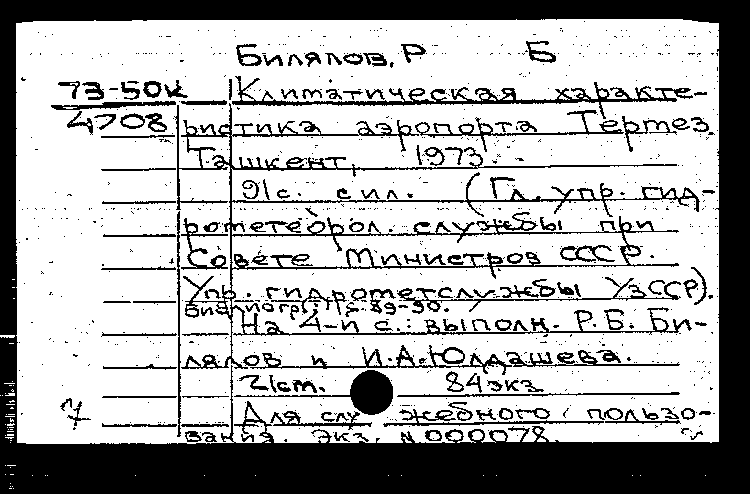 Билялов, Р Б
73-50к Климатическая характе-
4708 ристика аэропорта Термез
Ташкент, 1973.
91с. с ил. (Гл. упр. гид-
рометеорол. службы при
Совете Министров СССР.
Упр. гидрометслужбы УзССР).
Библиогр.: с. 89-90.
На 4-й с.: выполн. Р.Б. Би-
лялов и И.А. Юлдашева.
21см. 84экз
Для служебного пользо-
вания. Экз. N 000078.